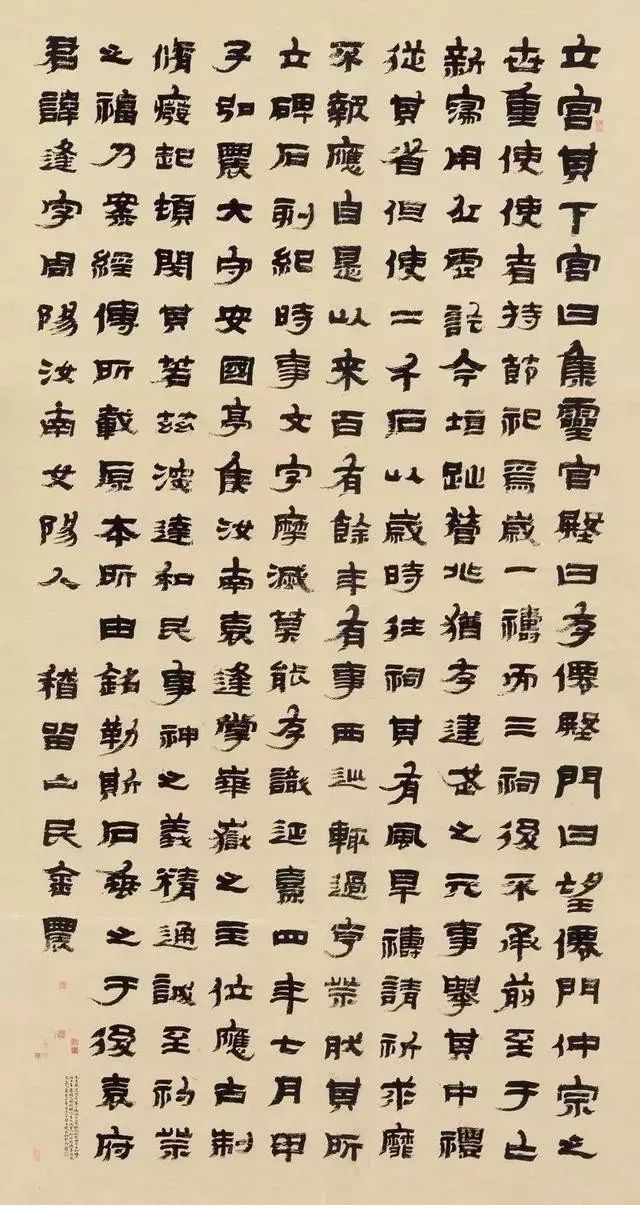 立宮其下宮曰集靈宮壂曰存僊壂門曰望僊門仲宗之
世重使使者持節祀焉歲一禱而三祠後不承前至于亡
新寖用丘虛訖今垣趾營兆猶存建武之元事舉其中禮
從其省但使二千石以歲時往祠其有風旱禱請祈求靡
不報應自是以來百有餘年有事西巡輒過享祭然其所
立碑石刻紀時事文字摩滅莫能存識延熹四年七月甲
子弘農大守安國亭侯汝南袁逢掌華嶽之主位應古制
脩廢起頓閔其若茲深達和民事神之義精通誠至礿祭
之福乃案經傳所載原本所由銘勒斯石垂之于後袁府
君諱逢字周陽汝南女陽人 稽留山民金農